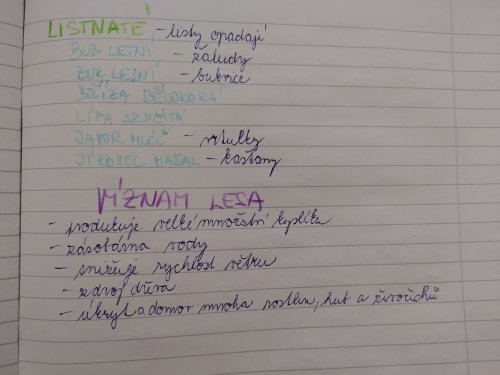 LISTNATÉ - listy opadají
DUB LETNÍ - žaludy
BUK LESNÍ - bukvice
BŘÍZA BĚLOKORÁ
LÍPA SRDČITÁ
JAVOR MLÉČ - vrtulky
JÍROVEC MAĎAL - kaštany
VÍZNAM LESA
- produkuje velké množství kyslíku
- zásobárna vody
- snižuje rychlost větru
- zdroj dřeva
- úkryt a domov mnoha rostlin, hub a živočichů